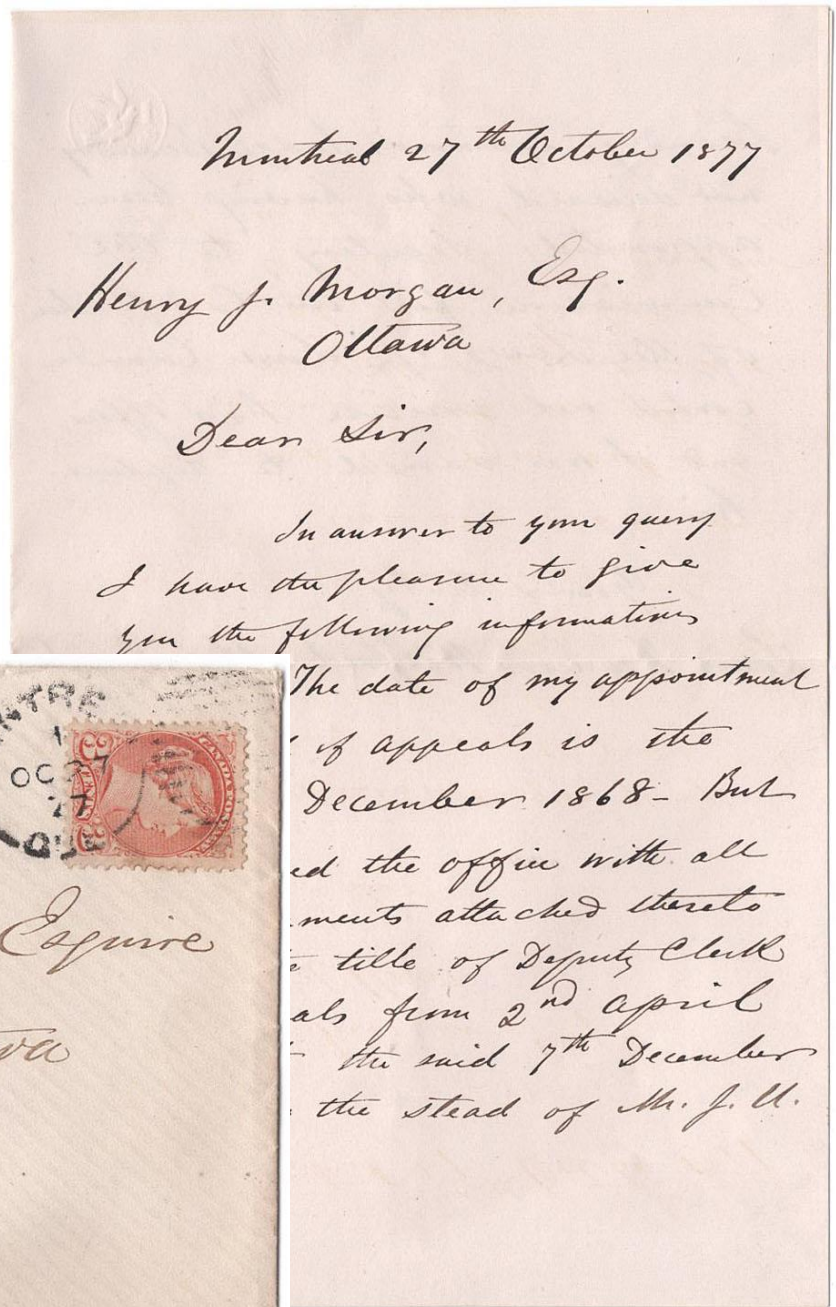 Montreal 27th October 1877
Henry J. Morgan, Esq.
Ottawa
Dear Sir,
In answer to your query
I have the pleasure to give
you the following informations
The date of my appointment
of appeals is the
December 1868 - But
ed the office with all
ments attached thereto
title of Deputy Clerk
als from 2nd April
the said 7th December
the stead of Mr. J. U.
NTRE
1
OC 27
77
QUE
Esquire
wa